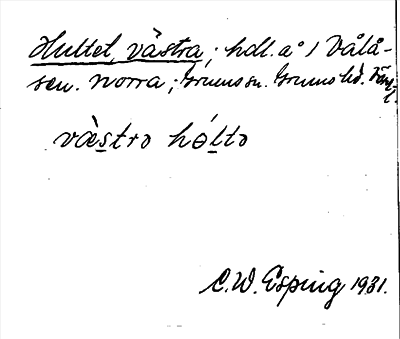 Hultet, västra; hdl. a° 1 Vålå-
sen. norra; Grums sn. Grums hd. Värml.
væ̀stro hólto
C. W. Esping 1931.